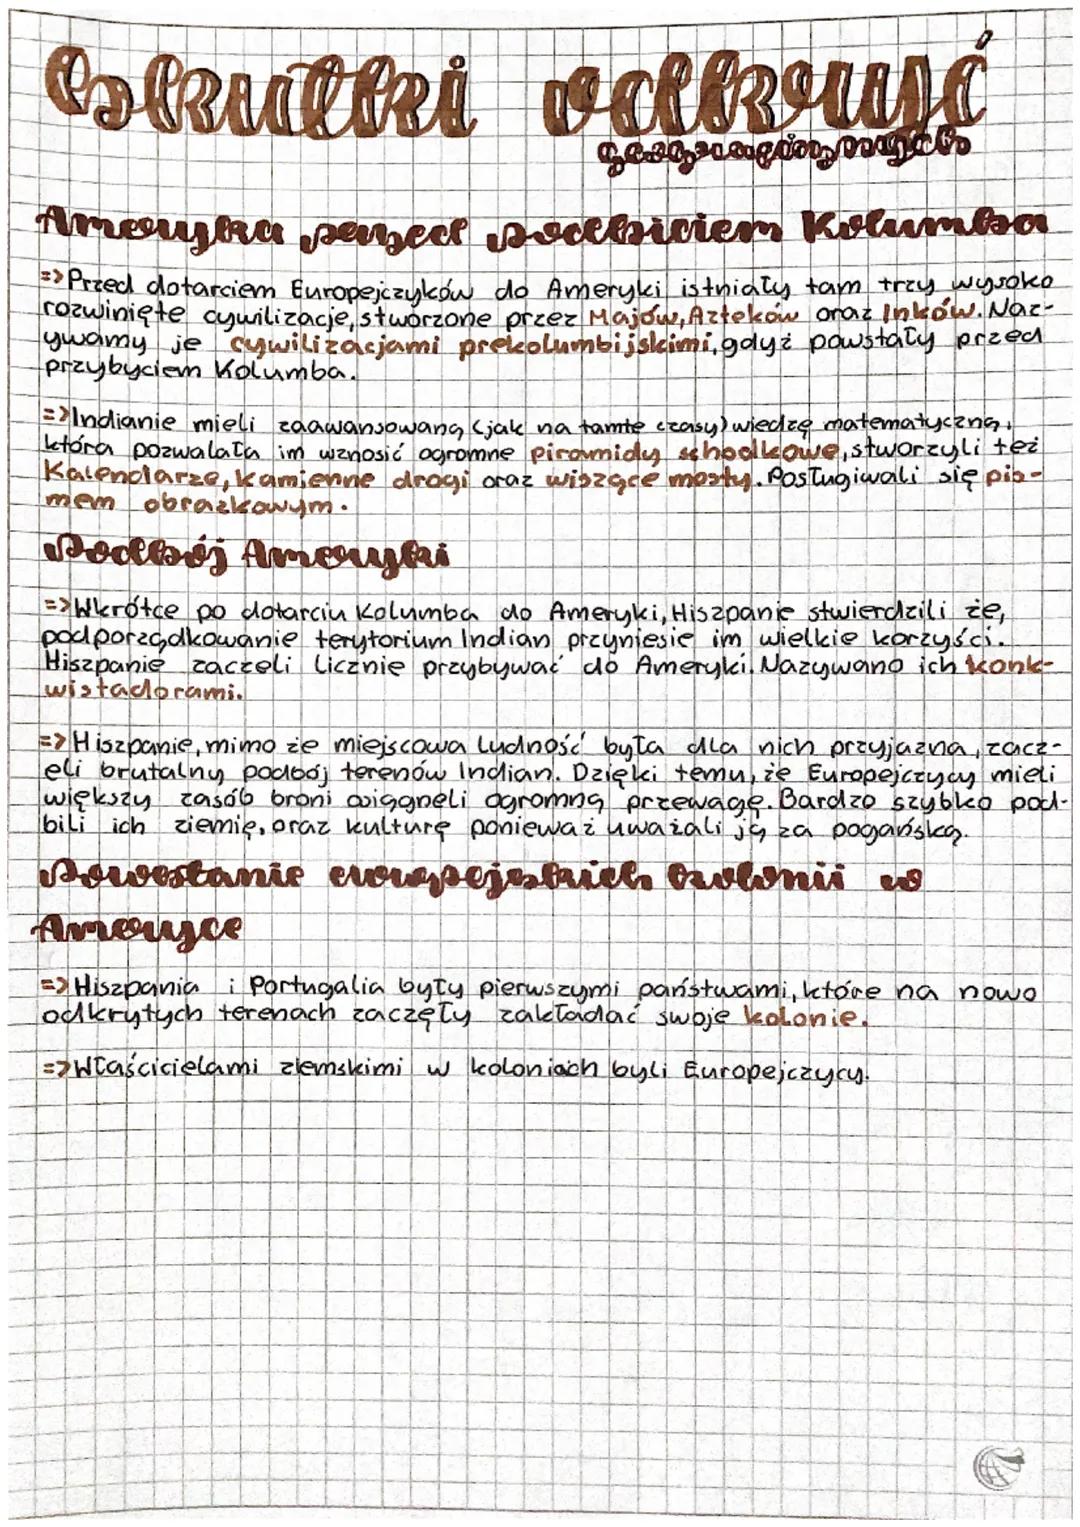 Skutki odkryć
geograficznych
Ameryka przed podbiciem Kolumba
=> Przed dotarciem Europejczyków do Ameryki istniały tam trzy wysoko
rozwinięte cywilizacje, stworzone przez Majów, Azteków oraz Inków. Naz-
ywamy je cywilizacjami prekolumbijskimi, gdyż powstały przed
przybyciem Kolumba.
=> Indianie mieli zaawansowaną (jak na tamte czasy) wiedzę matematyczną,
która pozwalała im wznosić ogromne piramidy schodkowe, stworzyli też
Kalendarze, kamienne drogi oraz wiszące mosty. Posługiwali się pis-
mem obrazkowym.
Podbój Ameryki
=> Wkrótce po dotarciu Kolumba do Ameryki, Hiszpanie stwierdzili że,
podporządkowanie terytorium Indian przyniesie im wielkie korzyści.
Hiszpanie zaczeli licznie przybywać do Ameryki. Nazywano ich konk-
wistadorami.
=> Hiszpanie, mimo że miejscowa ludność była dla nich przyjazna, zacz-
eli brutalny podbój terenów Indian. Dzięki temu, że Europejczycy mieli
większy zasób broni osiągneli ogromną przewagę. Bardzo szybko pod-
bili ich ziemię, oraz kulturę ponieważ uważali ją za pogańską.
Powstanie europejskich kolonii w
Ameryce
=> Hiszpania i Portugalia były pierwszymi państwami, które na nowo
odkrytych terenach zaczęły zakładać swoje kolonie.
=> Właścicielami ziemskimi w koloniach byli Europejczycy.